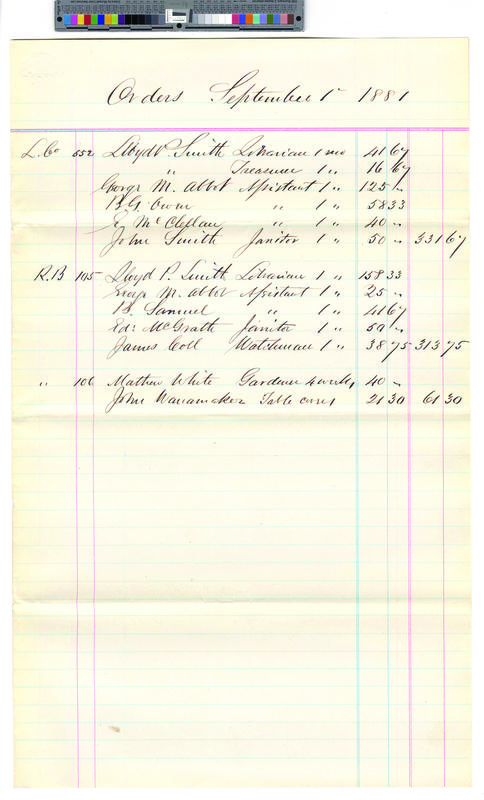 Orders September 1st 1881
L. Co 552 Lloyd P. Smith Librarian 1 mo 41 67
" Treasurer 1 " 16 67
George M. Abbot Assistant 1 " 125 "
B. G. Owen " 1 " 58 33
McClellan " 1 " 40 "
John Smith Janitor 1 " 50 " 331 67
R.B 105 Lloyd P. Smith Librarian 1 " 158 33
George M. Abbot Assistant 1 " 25 "
B. Samuel " 1 " 41 67
Ed: McGrath Janitor 1 " 50 "
James Coll Watchman 1 " 38 75 313 75
" 106 Mathew White Gardener 4 weeks 40 "
John Wanamaker Table cover 21 30 61 30